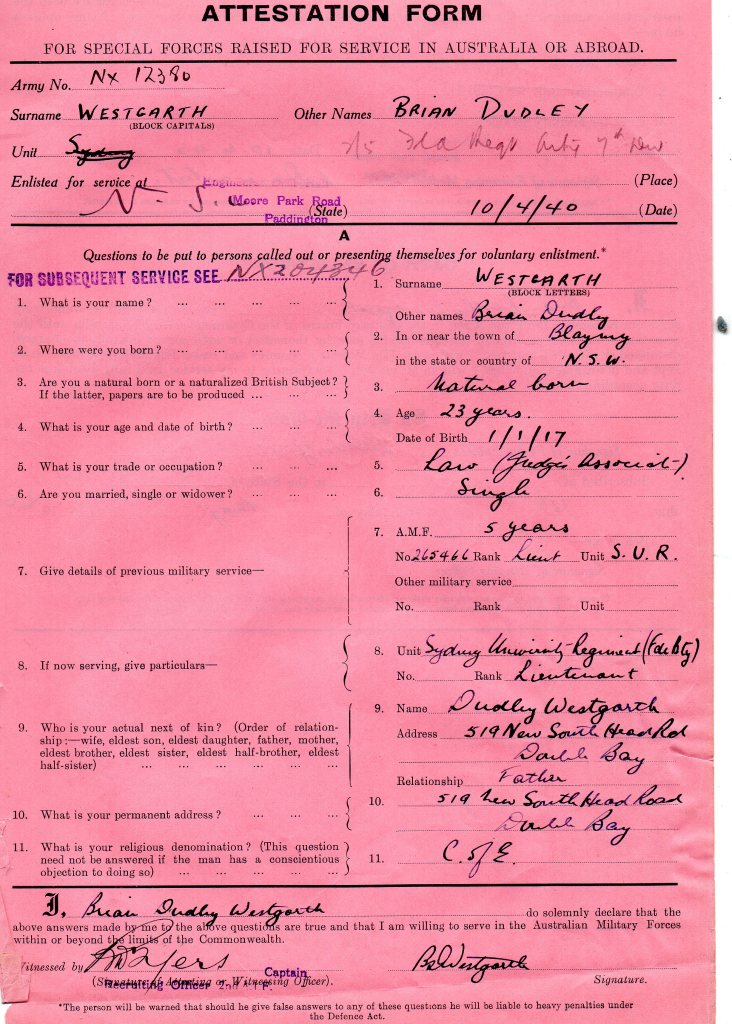 ATTESTATION FORM
FOR SPECIAL FORCES RAISED FOR SERVICE IN AUSTRALIA OR ABROAD.
Army No. NX 12380
Surname WESTGARTH Other Names BRIAN DUDLEY
(BLOCK CAPITALS)
Unit Sydney 2/5 Fld Regt Arty 7th Div
Enlisted for service at Engineers (Place)
Moore Park Road
N. S. (State) 10/4/40 (Date)
Paddington
A
Questions to be put to persons called out or presenting themselves for voluntary enlistment.*
FOR SUBSEQUENT SERVICE SEE NX204346
1. What is your name? ... ... ... ... ...
1. Surname WESTGARTH
(BLOCK LETTERS)
Other names Brian Dudley
2. Where were you born? ... ... ... ...
2. In or near the town of Blayney
in the state or country of N.S.W.
3. Are you a natural born or a naturalized British Subject?
If the latter, papers are to be produced ... ... ...
3. Natural born
4. What is your age and date of birth? ... ... ...
4. Age 23 years.
Date of Birth 1/1/17
5. What is your trade or occupation? ... ... ...
5. Law (Judge's Associate)
6. Are you married, single or widower? ... ... ...
6. Single
7. Give details of previous military service—
7. A.M.F. 5 years
No. 265466 Rank Lieut Unit S.U.R.
Other military service
No. Rank Unit
8. If now serving, give particulars—
8. Unit Sydney University Regiment (Fd Bty)
No. Rank Lieutenant
9. Who is your actual next of kin? (Order of relation-
ship:—wife, eldest son, eldest daughter, father, mother,
eldest brother, eldest sister, eldest half-brother, eldest
half-sister) ... ... ... ... ...
9. Name Dudley Westgarth
Address 519 New South Head Rd
Double Bay
Relationship Father
10. What is your permanent address? ... ... ...
10. 519 New South Head Road
Double Bay
11. What is your religious denomination? (This question
need not be answered if the man has a conscientious
objection to doing so) ... ... ... ...
11. C. of E.
I, Brian Dudley Westgarth do solemnly declare that the
above answers made by me to the above questions are true and that I am willing to serve in the Australian Military Forces
within or beyond the limits of the Commonwealth.
Witnessed by BDWestgarth
Captain
(Signature of Attesting or Witnessing Officer). Signature.
Recruiting Officer 2nd A.I.F.
*The person will be warned that should he give false answers to any of these questions he will be liable to heavy penalties under
the Defence Act.